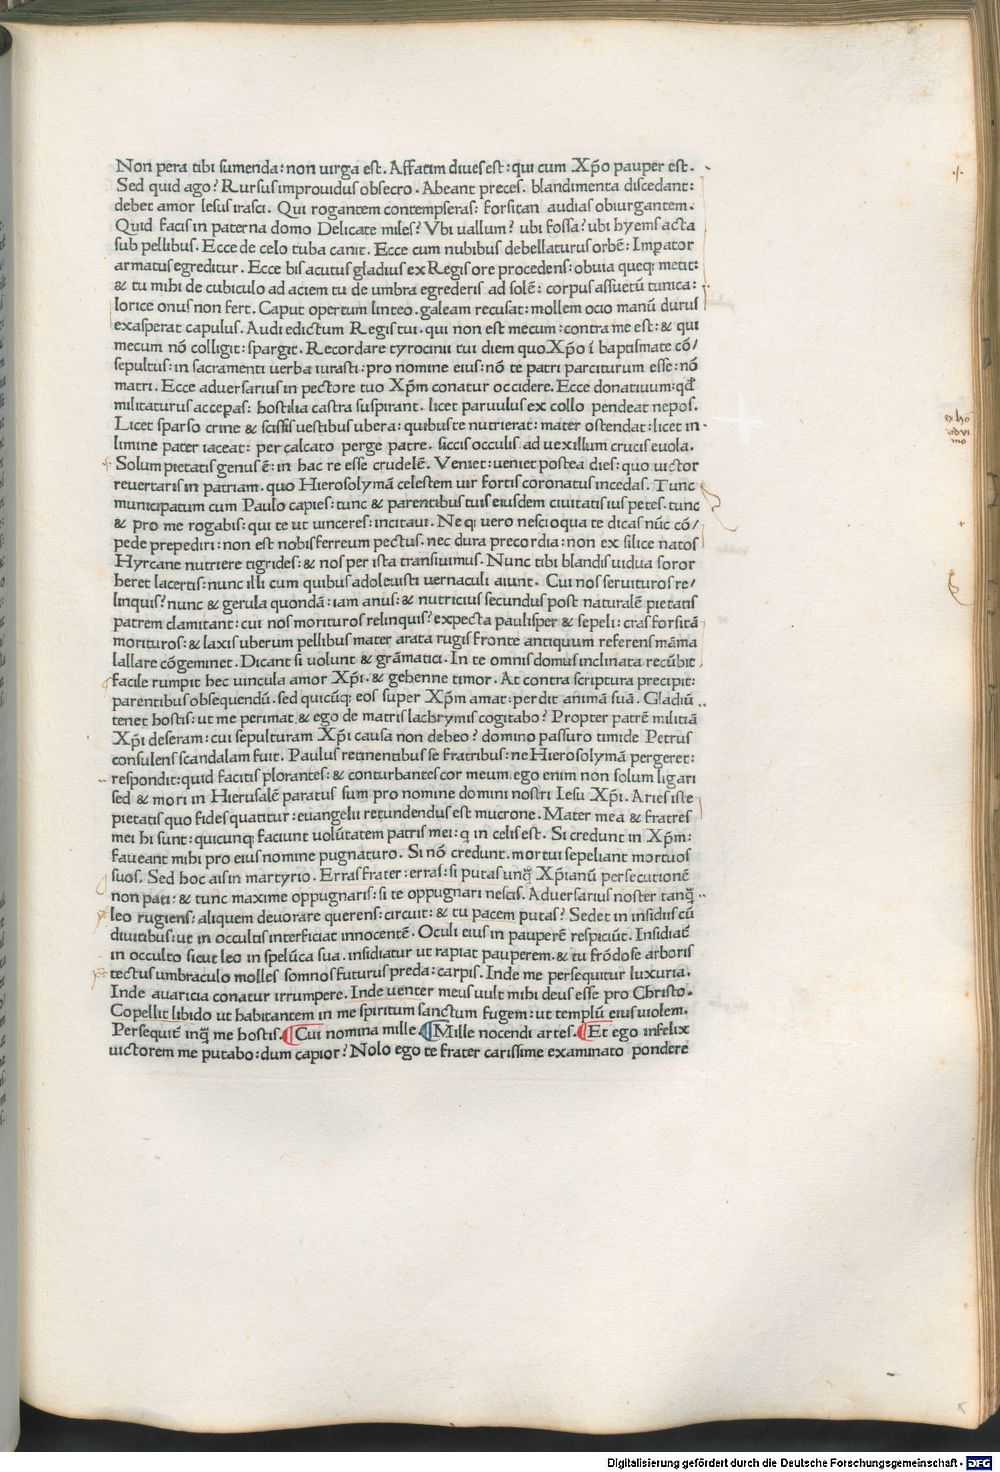 Non pera tibi sumenda: non uirga est. Affatim diues est: qui cum Xp̄o pauper est.
Sed quid ago? Rursus improuidus obsecro. Abeant preces. blandimenta discedant:
debet amor lesus irasci. Qui rogantem contempseras: forsitan audias obiurgantem.
Quid facis in paterna domo Delicate miles? Vbi uallum? ubi fossa? ubi hyems acta
sub pellibus. Ecce de celo tuba canit. Ecce cum nubibus debellaturus orbē: Imp̄ator
armatus egreditur. Ecce bis acutus gladius ex Regis ore procedens: obuia queqꝫ metit:
& tu mihi de cubiculo ad aciem tu de umbra egrederis ad solē: corpus assuetū tunica:
lorice onus non fert. Caput opertum linteo. galeam recusat: mollem ocio manū durus
exasperat capulus. Audi edictum Regis tui. qui non est mecum: contra me est: & qui
mecum nō colligit: spargit. Recordare tyrocinii tui diem quo Xp̄o ī baptismate cō/
sepultus: in sacramenti uerba iurasti: pro nomine eius: nō te patri parciturum esse: nō
matri. Ecce aduersarius in pectore tuo Xp̄m conatur occidere. Ecce donatiuum: qd̄
militaturus acceperas: hostilia castra suspirant. licet paruulus ex collo pendeat nepos.
Licet sparso crine & scissis uestibus ubera: quibus te nutrierat: mater ostendat: licet in
limine pater iaceat: per calcato perge patre. siccis occulis ad uexillum crucis euola.
Solum pietatis genus ē: in hac re esse crudelē. Veniet: ueniet postea dies: quo uictor
reuertaris in patriam. quo Hierosolymā celestem uir fortis coronatus incedas. Tunc
municipatum cum Paulo capies: tunc & parentibus tuis eiusdem ciuitatis ius petes. tunc
& pro me rogabis: qui te ut uinceres: incitaui. Neqꝫ uero nescio qua te dicas nūc cō/
pede prepediri: non est nobis ferreum pectus. nec dura precordia: non ex silice natos
Hyrcane nutriere tigrides: & nos per ista transiuimus. Nunc tibi blandis uidua soror
heret lacertis: nunc illi cum quibus adoleuisti uernaculi aiunt. Cui nos seruituros re/
linquis? nunc & gerula quondā: iam anus: & nutricius secundus post naturalē pietatis
patrem clamitant: cui nos morituros relinquis? expecta paulisper & sepeli: cras forsitā
morituros: & laxis uberum pellibus mater arata rugis fronte antiquum referens māma
lallare cōgeminet. Dicant si uolunt & grāmatici. In te omnis domus inclinata recūbit
facile rumpit hec uincula amor Xp̄i. & gehenne timor. At contra scriptura precipit:
parentibus obsequendū. sed quicūqꝫ eos super Xp̄m amat: perdit animā suā. Gladiū
tenet hostis: ut me perimat & ego de matris lachrymis cogitabo? Propter patrē militiā
Xp̄i deseram: cui sepulturam Xp̄i causa non debeo? domino passuro timide Petrus
consulens scandalam fuit. Paulus retinentibus se fratribus: ne Hierosolymā pergeret:
respondit: quid facitis plorantes: & conturbantes cor meum. ego enim non solum ligari
sed & mori in Hierusalē paratus sum pro nomine domini nostri Iesu Xp̄i. Aries iste
pietatis quo fides quatitur: euangelii retundendus est mucrone. Mater mea & fratres
mei hi sunt: quicunqꝫ faciunt uolūtatem patris mei: q̄ in celis est. Si credunt in Xp̄m:
faueant mihi pro eius nomine pugnaturo. Si nō credunt. mortui sepeliant mortuos
suos. Sed hoc ais in martyrio. Erras frater: erras: si putas unq̄ Xp̄ianū persecutionē
non pati: & tunc maxime oppugnaris: si te oppugnari nescis. Aduersarius noster tanq̄
leo rugiens: aliquem deuorare querens: circuit: & tu pacem putas? Sedet in insidiis cū
diuitibus: ut in occultis interficiat innocentē. Oculi eius in pauperē respiciūt. Insidiat᷑
in occulto sicut leo in spelūca sua. insidiatur ut rapiat pauperem. & tu frōdose arboris
tectus umbraculo molles somnos futurus preda: carpis. Inde me persequitur luxuria.
Inde auaricia conatur irrumpere. Inde uenter meus uult mihi deus esse pro Christo.
Copellit libido ut habitantem in me spiritum sanctum fugem: ut templū eius uiolem.
Persequit᷑ inq̄ me hostis. ¶ Cui nomina mille. ¶ Mille nocendi artes. ¶ Et ego infelix
uictorem me putabo: dum capior? Nolo ego te frater carissime examinato pondere
Digitalisierung gefördert durch die Deutsche Forschungsgemeinschaft - DFG